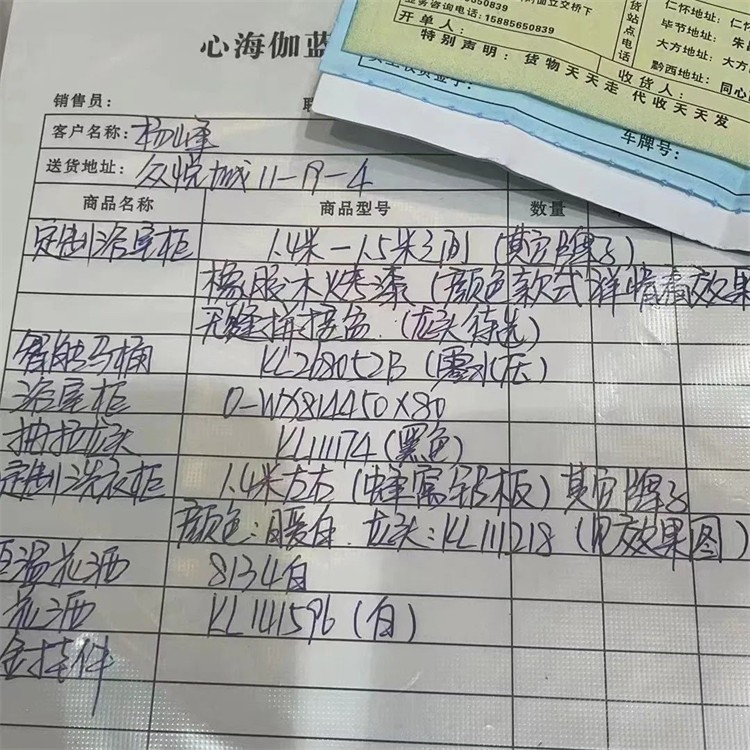 心海伽蓝
面立交桥下
业务咨询电话：15885650839
开单人：
特别声明：货物天天走 代收天天发
收货人：
货站点电话
仁怀地址：仁
毕节地址：朱
大方地址：大方
黔西地址：同心
车牌号：
销售员：
客户名称：杨峰
送货地址：众悦城11-19-4
商品名称 商品型号 数量
定制浴室柜 1.4米-1.5米之间（其它牌子）
橡胶木烤漆（颜色款式详情看效果
无缝拼接盆（龙头待选）
智能马桶 KL268052B（零水压）
浴室柜 D-WX814450X80
抽拉龙头 KL111174（黑色）
定制洗衣柜 1.4米左右（蜂窝铝板）其它牌子
颜色：暖白 龙头：KL111218（见效果图）
恒温花洒 8134白
花洒 KL141596（白）
金挂件